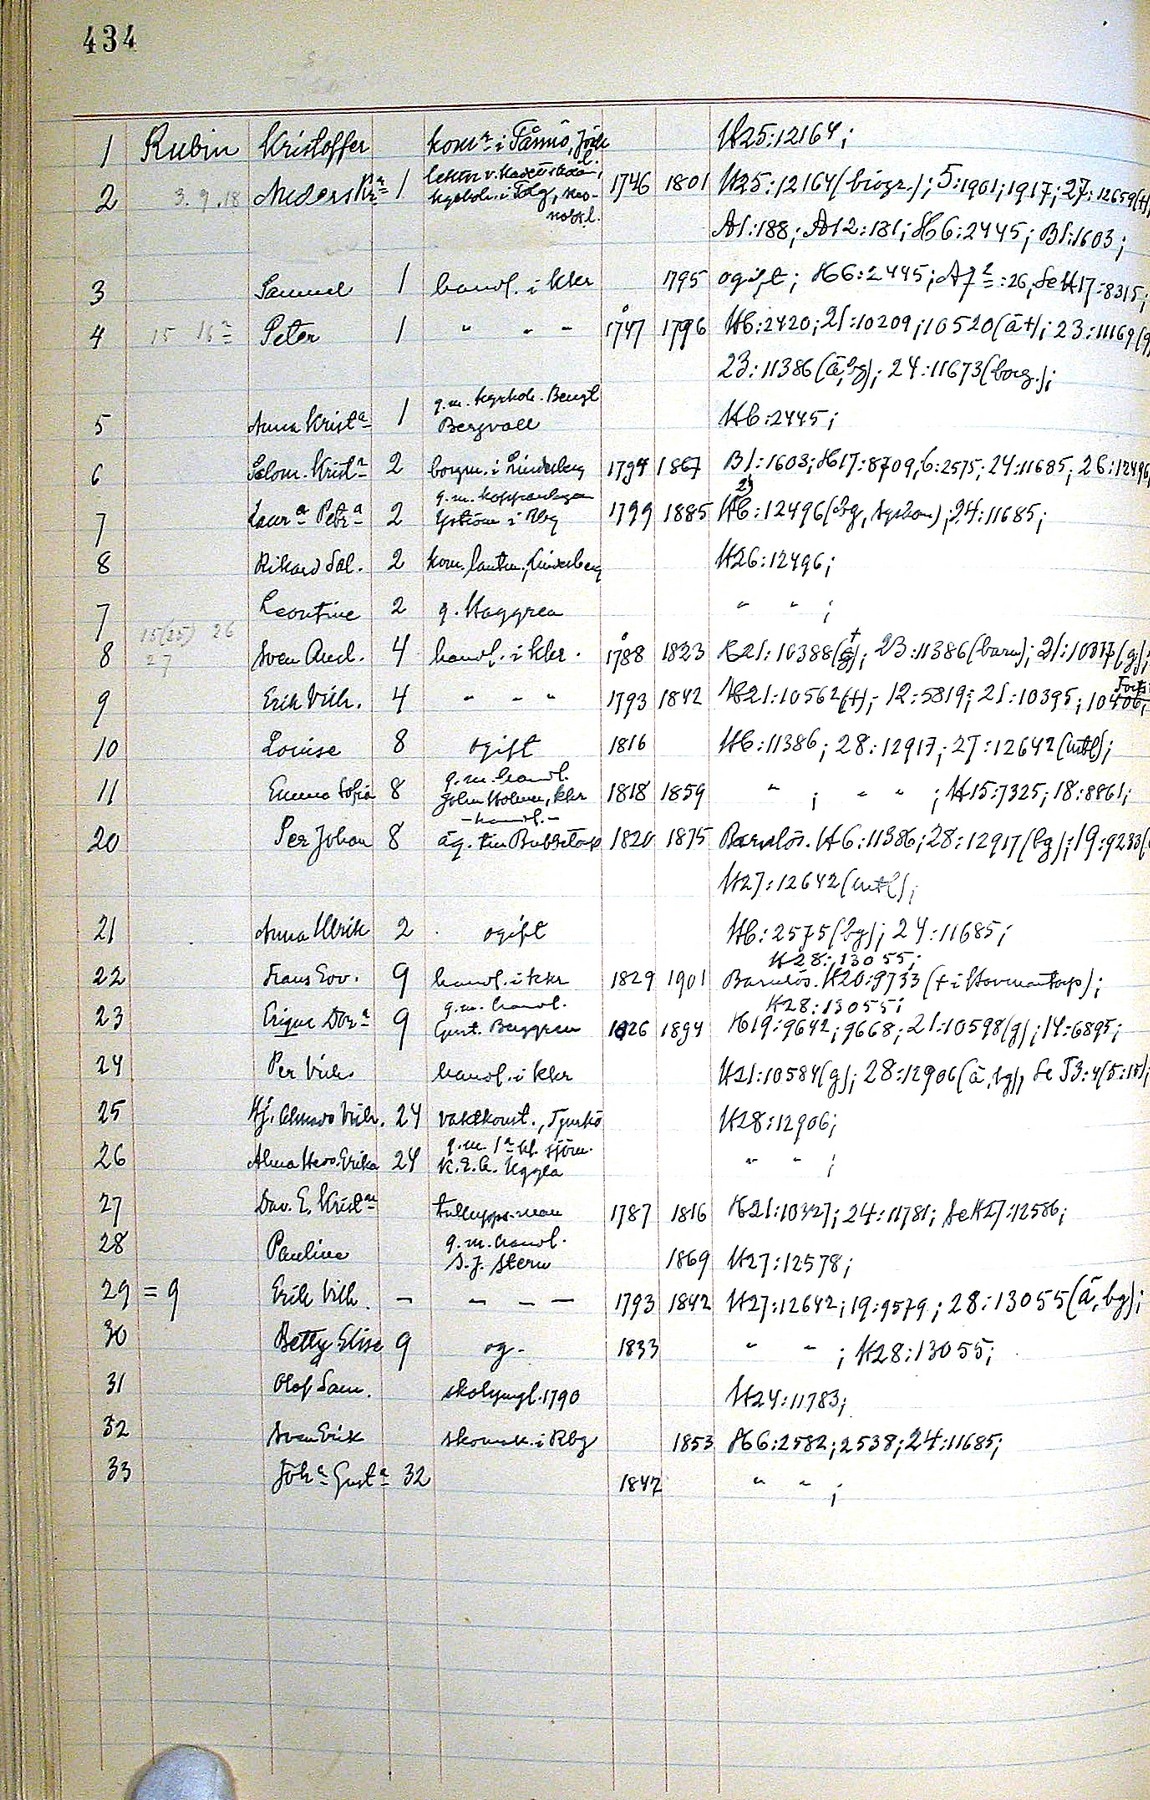 434
1 Rubin Kristoffer i Tärnö, K25:12164;
2 3. 9. 18 Anders 1 1746 1801 K25:12164 (biogr.); 5:1901; 1917; 27:12659
A1:188; A12:131; K6:2445; B1:1603;
3 Samuel 1 handl. i kkr 1795 ogift; K6:2445; :26, Se K17:8315;
4 15 Peter 1 " " " 1747 1796 K6:2420; 21:10209; 10520 (ā+); 23:11169
23:11386 (ā, bg); 24:11673 (borg.);
5 Anna Krist a 1 g.m. kyrkoh. Bengt Bergvall K6:2445;
6 Salom. Krist n 2 borgm. i Lindesberg 1867 B1:1603; K17:8709, 6:2575; 24:11685; 26:12496
7 Laur a Petr a 2 g.m. i Rbg 1799 1885 :12496 (bg, syskon); 24:11685;
8 Rikard Sal. 2 Lindesberg K26:12496;
7 Leontine 2 g. Haggren " " ;
15(25) 26
8 27 Sven And. 4 handl. i kkr. 1788 1823 K21:10388 ; 23:11386 (barn);
9 Erik Vilh. 4 " " " 1793 1842 K21:10562 (+); 12:5819; 21:10395;
10 Louise 8 ogift 1816 K6:11386; 28:12917; 27:12642 (utfl);
11 Emma Sofia 8 g.m. handl. John Holmer, kkr 1818 1859 " ; " " ; K15:7325; 18:8861;
20 Per Johan 8 - handl. - äg. 1820 1875 Barnlös. K6:11386; 28:12917 (bg); 19:9233
K27:12642 (utfl);
21 Anna Ulrik 2 ogift K6:2575 (bg); 24:11685;
K28:13055;
22 Frans Edv. 9 handl. i kkr 1829 1901 Barnlös. K20:9733 (+ i Hovmantorp);
K28:13055;
23 9 g.m. handl. Gust. Berggren 1826 1894 K19:9642; 9668; 21:10598 (g); 14:6895;
24 Per Vilh. handl. i kkr K21:10584 (g); 28:12906 (ā, bg),
25 Hj. Vilh. 24 vaktkonst., Tjurkö K28:12906;
26 Alma Erika 24 g.m. sjöm. K.E.A. Uggla " " ;
27 Dav. E. Krist n tulluppsman 1787 1816 K21:10327; 24:11781; Se K27:12586;
28 Pauline g.m. handl. S.J. Stern 1869 K27:12578;
29 = 9 Erik Vilh. - - - - 1793 1842 K27:12642; 19:9579; 28:13055 (ā, bg);
30 Betty Elise 9 og- 1833 " " ; K28:13055;
31 Olof Sam. skolyngl. 1790 K24:11783;
32 Sven Erik skomak. i Rbg 1853 K6:2582; 2538; 24:11685;
33 Joh a Gust a 32 1847 " " ;